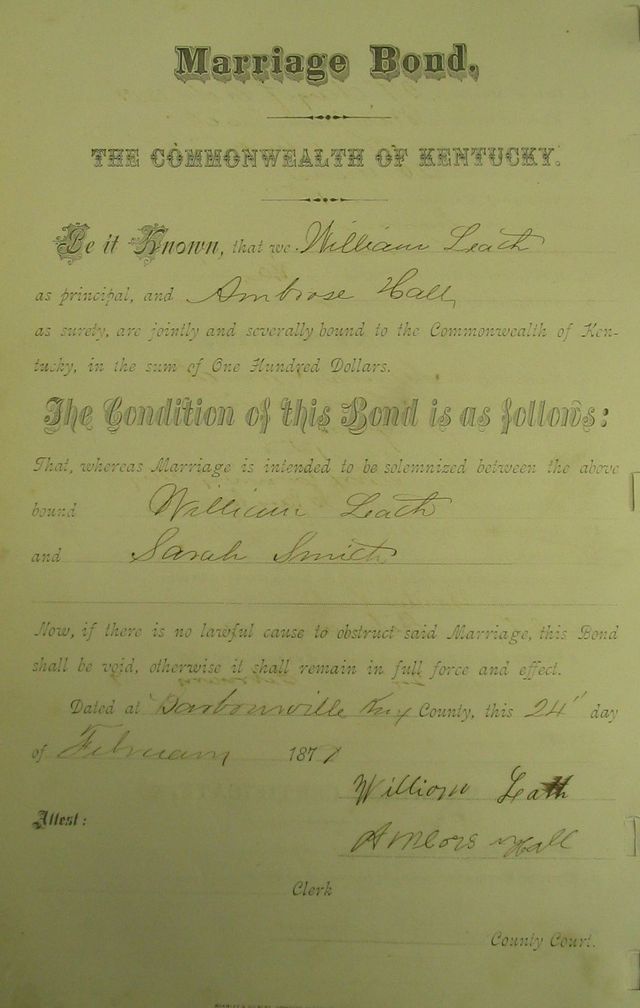 Marriage Bond.
THE COMMONWEALTH OF KENTUCKY.
Be it Known, that we William Leath
as principal, and Ambrose Hall,
as surety, are jointly and severally bound to the Commonwealth of Ken-
tucky, in the sum of One Hundred Dollars.
The Condition of this Bond is as follows:
That, whereas Marriage is intended to be solemnized between the above
bound William Leath
and Sarah Smith
Now, if there is no lawful cause to obstruct said Marriage, this Bond
shall be void, otherwise it shall remain in full force and effect.
Dated at Barbourville Knox County, this 24" day
of February 1871
William Leath
Attest:
Hall
Clerk
County Court.